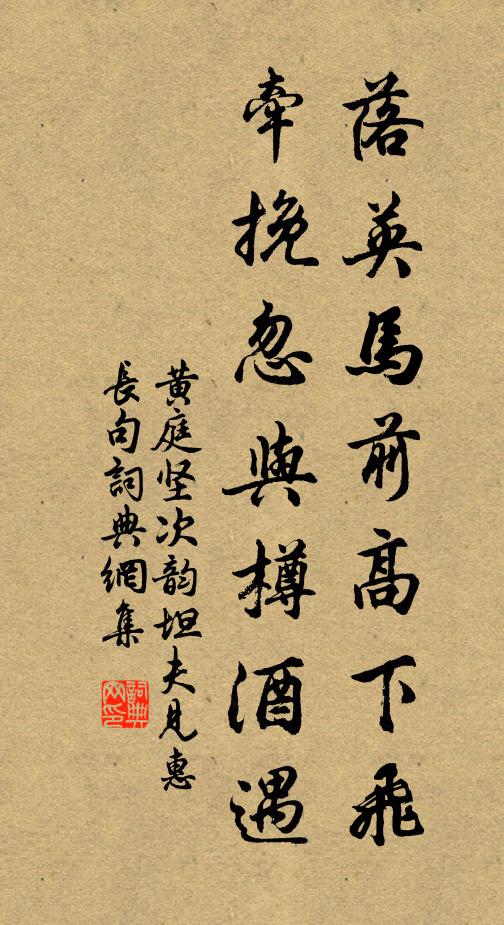 落英馬前高下飛
牽挽忽與樽酒遇
黄庭坚次韵坦夫見惠
長句詞典網集
詞典网印